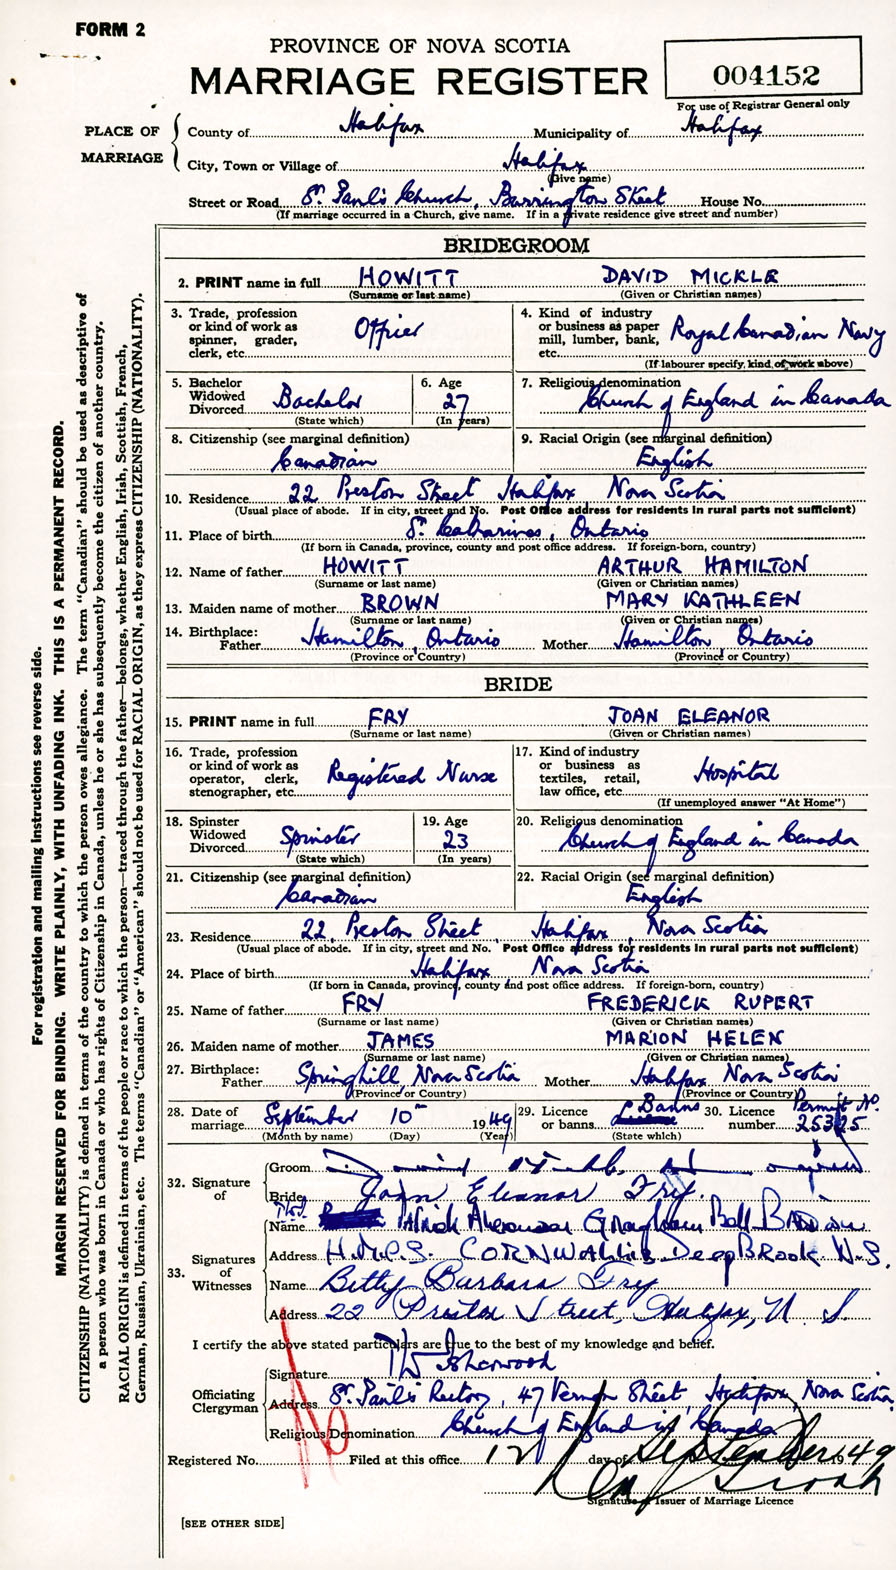 FORM 2
PROVINCE OF NOVA SCOTIA
MARRIAGE REGISTER
004152
For use of Registrar General only
PLACE OF MARRIAGE
County of Halifax Municipality of Halifax
City, Town or Village of Halifax
(Give name)
Street or Road St. Paul's Church, Barrington Street House No.
(If marriage occurred in a Church, give name. If in a private residence give street and number)
BRIDEGROOM
2. PRINT name in full HOWITT DAVID MICKLE
(Surname or last name) (Given or Christian names)
3. Trade, profession or kind of work as spinner, grader, clerk, etc. Officer
4. Kind of industry or business as paper mill, lumber, bank, etc. Royal Canadian Navy
(If labourer specify, kind of work above)
5. Bachelor Widowed Divorced Bachelor
(State which)
6. Age 27
(In years)
7. Religious denomination
Church of England in Canada
8. Citizenship (see marginal definition)
Canadian
9. Racial Origin (see marginal definition)
English
10. Residence 22 Preston Street Halifax, Nova Scotia
(Usual place of abode. If in city, street and No. Post Office address for residents in rural parts not sufficient)
11. Place of birth St. Catharines, Ontario
(If born in Canada, province, county and post office address. If foreign-born, country)
12. Name of father HOWITT ARTHUR HAMILTON
(Surname or last name) (Given or Christian names)
13. Maiden name of mother BROWN MARY KATHLEEN
(Surname or last name) (Given or Christian names)
14. Birthplace:
Father Hamilton, Ontario Mother Hamilton, Ontario
(Province or Country) (Province or Country)
BRIDE
15. PRINT name in full FRY JOAN ELEANOR
(Surname or last name) (Given or Christian names)
16. Trade, profession or kind of work as operator, clerk, stenographer, etc. Registered Nurse
17. Kind of industry or business as textiles, retail, law office, etc. Hospital
(If unemployed answer "At Home")
18. Spinster Widowed Divorced Spinster
(State which)
19. Age 23
(In years)
20. Religious denomination
Church of England in Canada
21. Citizenship (see marginal definition)
Canadian
22. Racial Origin (see marginal definition)
English
23. Residence 22, Preston Street, Halifax, Nova Scotia
(Usual place of abode. If in city, street and No. Post Office address for residents in rural parts not sufficient)
24. Place of birth Halifax, Nova Scotia
(If born in Canada, province, county and post office address. If foreign-born, country)
25. Name of father FRY FREDERICK RUPERT
(Surname or last name) (Given or Christian names)
26. Maiden name of mother JAMES MARION HELEN
(Surname or last name) (Given or Christian names)
27. Birthplace:
Father Springhill, Nova Scotia Mother Halifax Nova Scotia
(Province or Country) (Province or Country)
28. Date of marriage September 10th 1949
(Month by name) (Day) (Year)
29. Licence or banns Banns
(State which)
30. Licence number Permit No. 25325
32. Signature of
Groom
Bride Joan Eleanor Fry.
33. Signatures of Witnesses
Name
Address H.M.C.S. CORNWALLIS Deep Brook N.S.
Name Betty Barbara Fry
Address 22 Preston Street, Halifax, N. S.
I certify the above stated particulars are true to the best of my knowledge and belief.
Officiating Clergyman
Signature Sherwood
Address St. Paul's Rectory, 47 Vernon Street, Halifax, Nova Scotia
Religious Denomination Church of England in Canada
Registered No. Filed at this office 12 day of September 1949
Signature of Issuer of Marriage Licence
[SEE OTHER SIDE]
For registration and mailing instructions see reverse side.
MARGIN RESERVED FOR BINDING. WRITE PLAINLY, WITH UNFADING INK. THIS IS A PERMANENT RECORD.
CITIZENSHIP (NATIONALITY) is defined in terms of the country to which the person owes allegiance. The term "Canadian" should be used as descriptive of
a person who was born in Canada or who has rights of Citizenship in Canada, unless he or she has subsequently become the citizen of another country.
RACIAL ORIGIN is defined in terms of the people or race to which the person—traced through the father—belongs, whether English, Irish, Scottish, French,
German, Russian, Ukrainian, etc. The terms "Canadian" or "American" should not be used for RACIAL ORIGIN, as they express CITIZENSHIP (NATIONALITY).